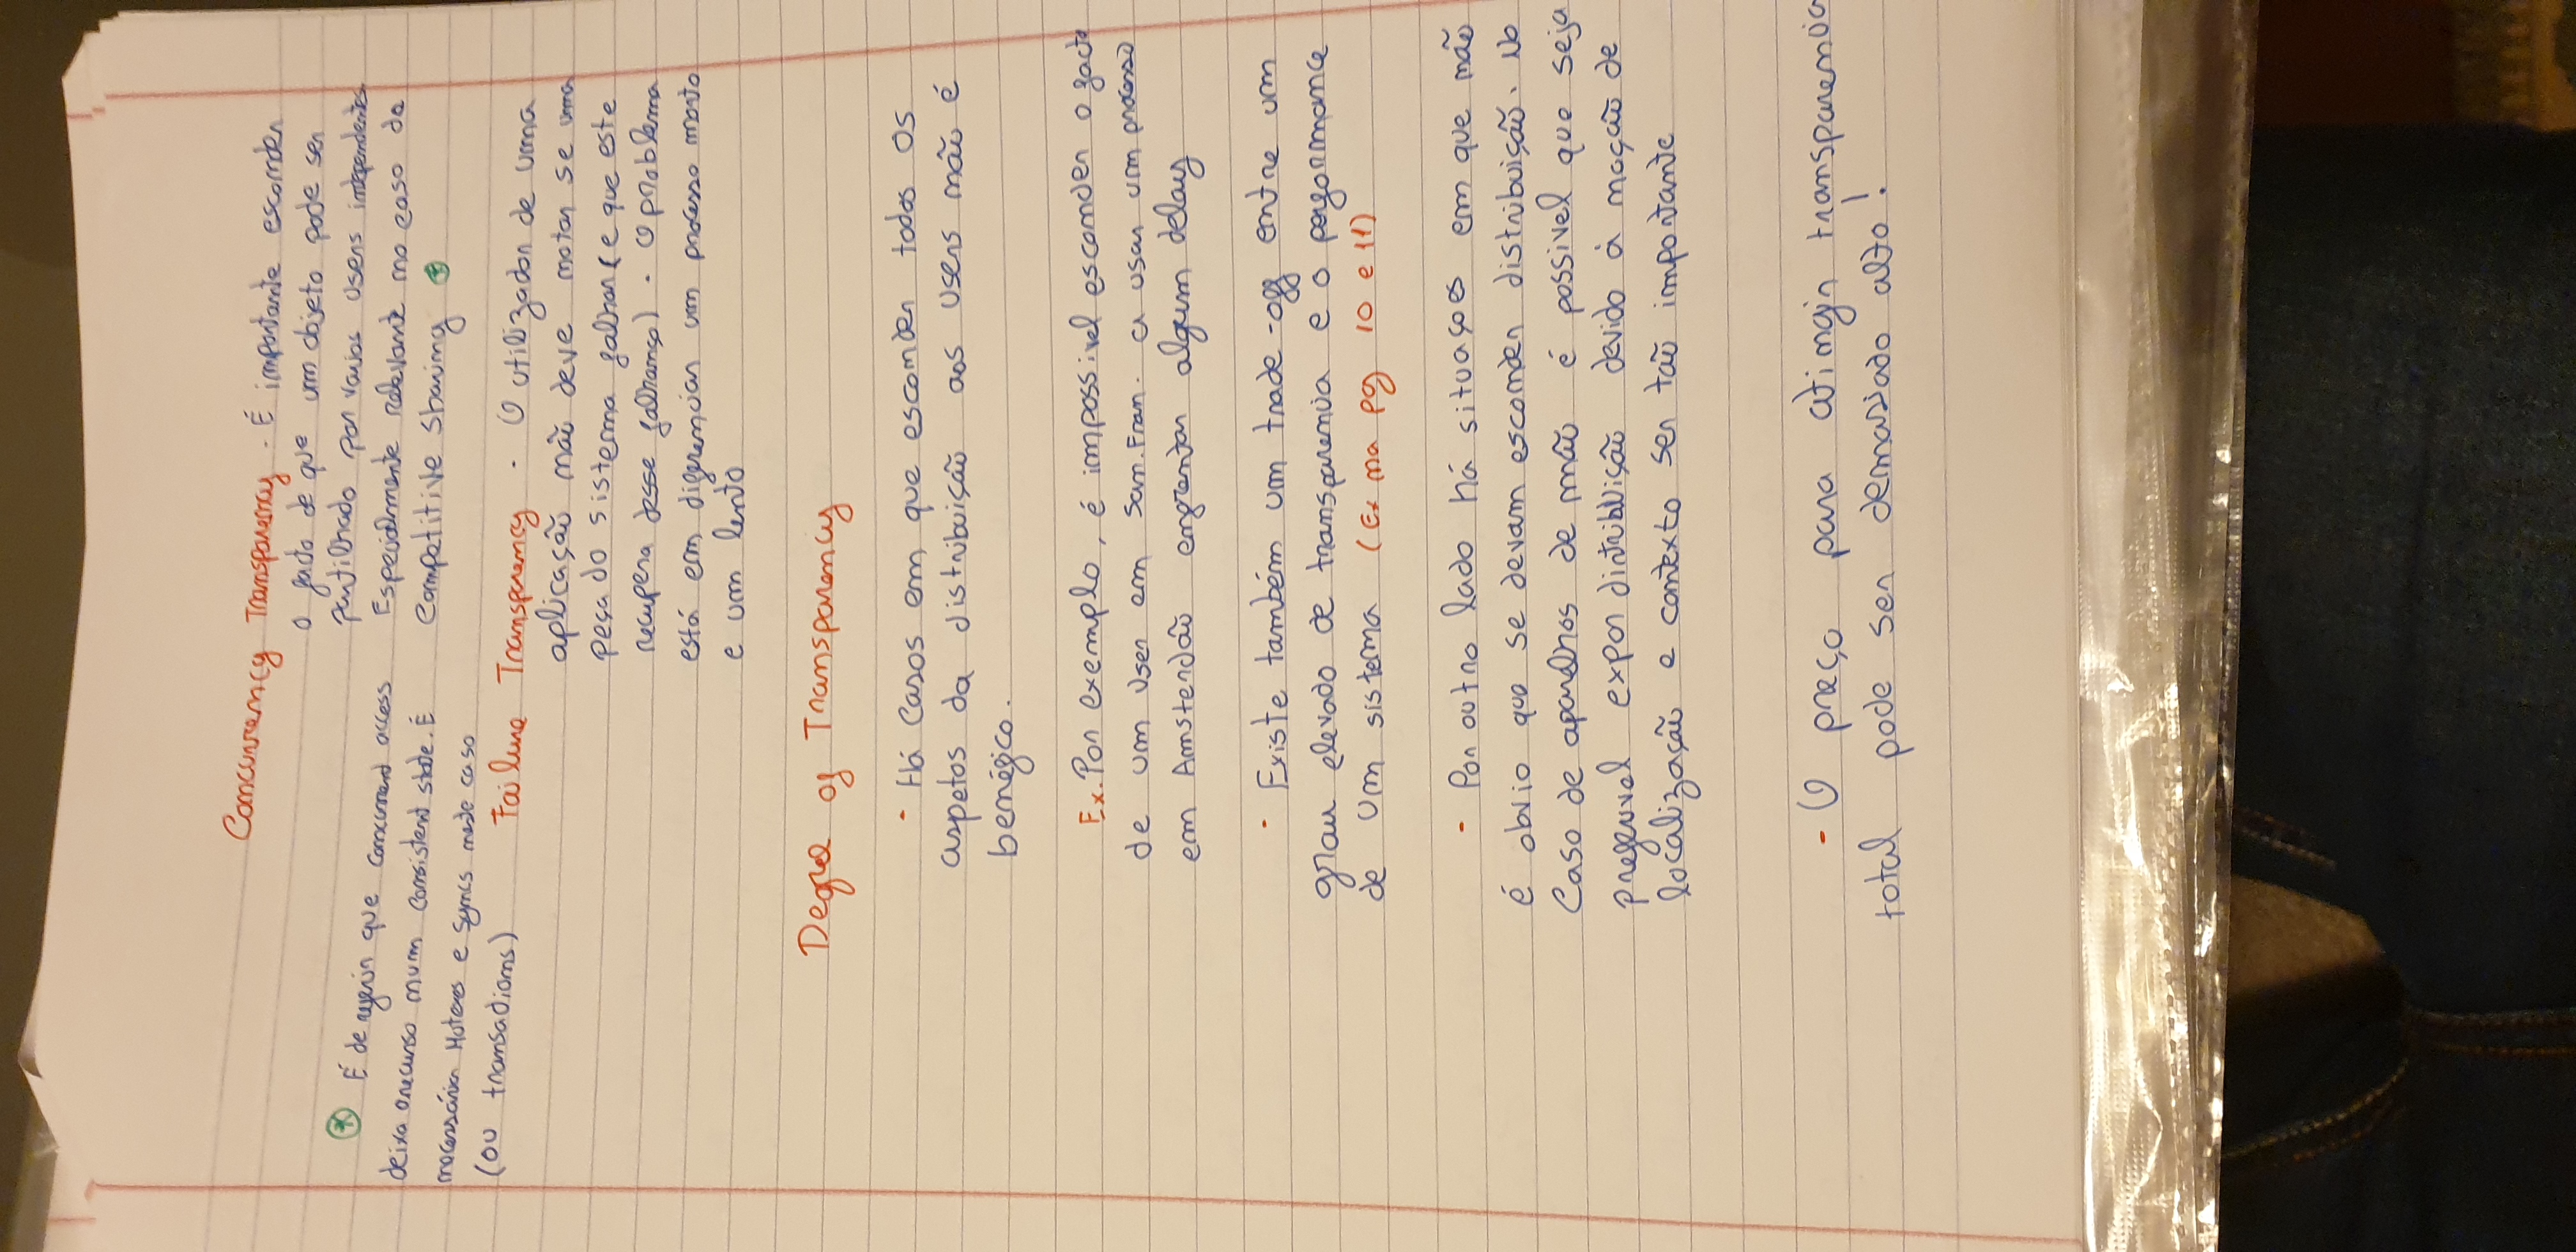 Concurrency Transparency - É importante esconder
o facto de que um objeto pode ser
partilhado por varios users independentes
Especialmente relevante no caso de
competitive sharing *
* É de referir que concurrent access
deixa o recurso num consistent state. É
necessário Mutexes e Syncs neste caso
(ou transactions)
Failure Transparency - O utilizador de uma
aplicação não deve notar se uma
peça do sistema falhar (e que este
recupera desse falhanço). O problema
está em diferenciar um processo morto
e um lento
Degree of Transparency
- Há casos em que esconder todos os
aspetos da distribuição aos users não é
benéfico.
Ex. Por exemplo, é impossivel esconder o facto
de um user em San. Fran. a usar um processo
em Amsterdão enfrentar algum delay
- Existe também um trade-off entre um
grau elevado de transparencia e o performance
de um sistema (Ex na pg 10 e 11)
- Por outro lado há situaçoes em que não
é obvio que se devam esconder distribuição. No
caso de aparelhos de mão é possivel que seja
preferivel expor dintribuição devido à noção de
localização e contexto ser tão importante
- O preço para atingir transparencia
total pode ser demasiado alto!